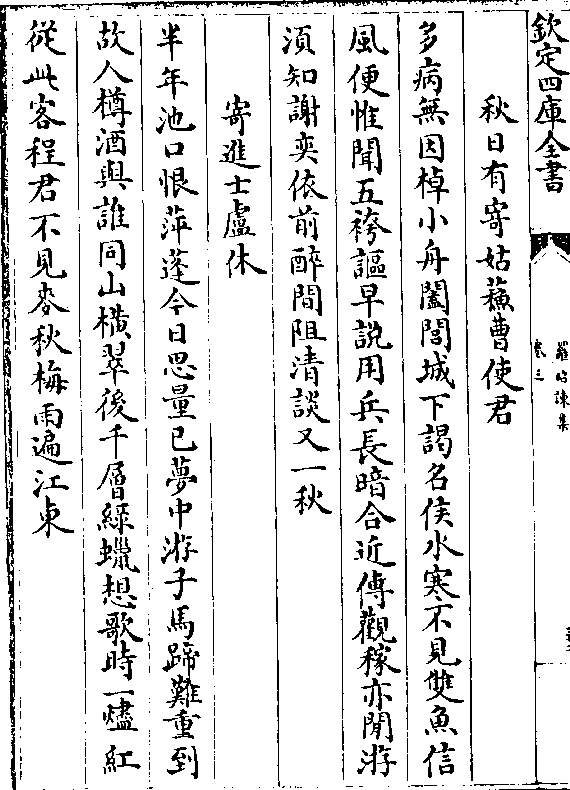 欽定四庫全書
羅昭諫集
卷三
秋日有寄姑蘇曹使君
多病無因棹小舟闔閭城下謁名侯水寒不見雙魚信
風便惟聞五袴謳早説用兵長暗合近傳觀稼亦閒游
須知謝奕依前醉間阻清談又一秋
寄進士盧休
半年池口恨萍蓬今日思量已夢中游子馬蹄難重到
故人樽酒與誰同山橫翠後千層緑蠟想歌時一燼紅
從此客程君不見麥秋梅雨遍江東